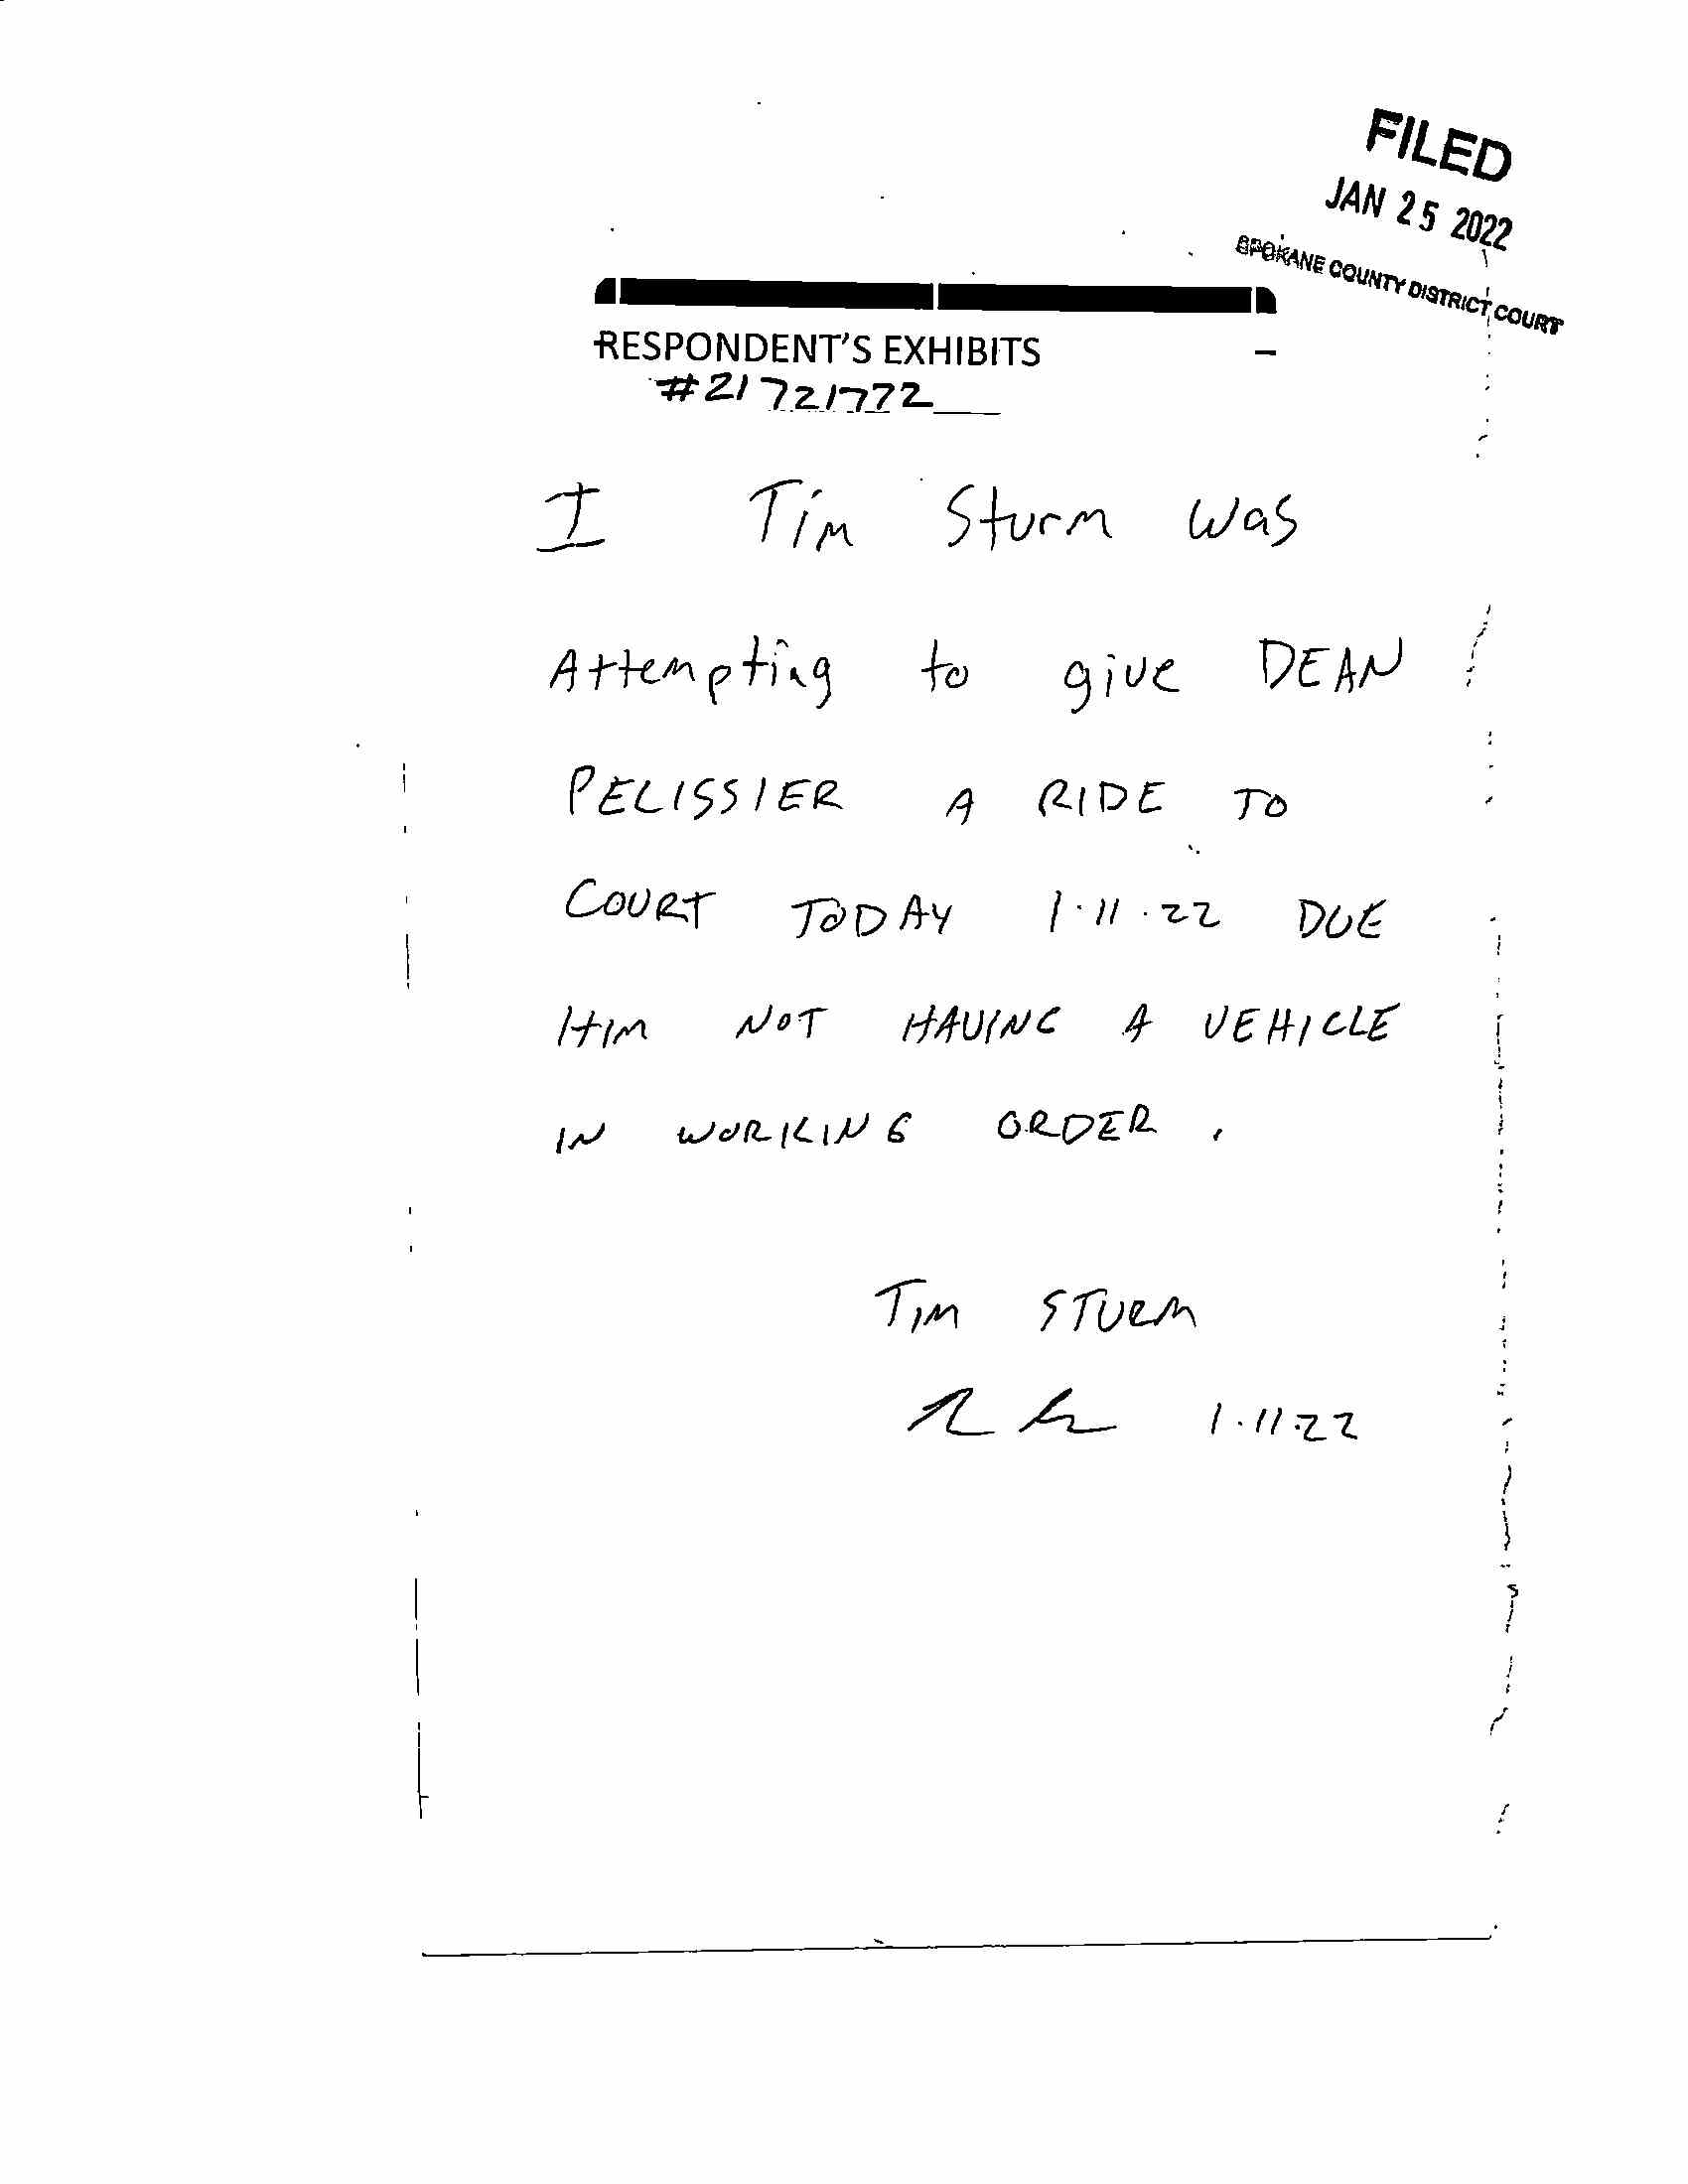 FILED
JAN 25 2022
SPOKANE COUNTY DISTRICT COURT
RESPONDENT'S EXHIBITS
#21721772
I Tim Sturm was
Attempting to give DEAN
PELISSIER A RIDE TO
COURT TODAY 1·11·22 DUE
HIM NOT HAVING A VEHICLE
IN WORKING ORDER.
TIM STURM
1·11·22